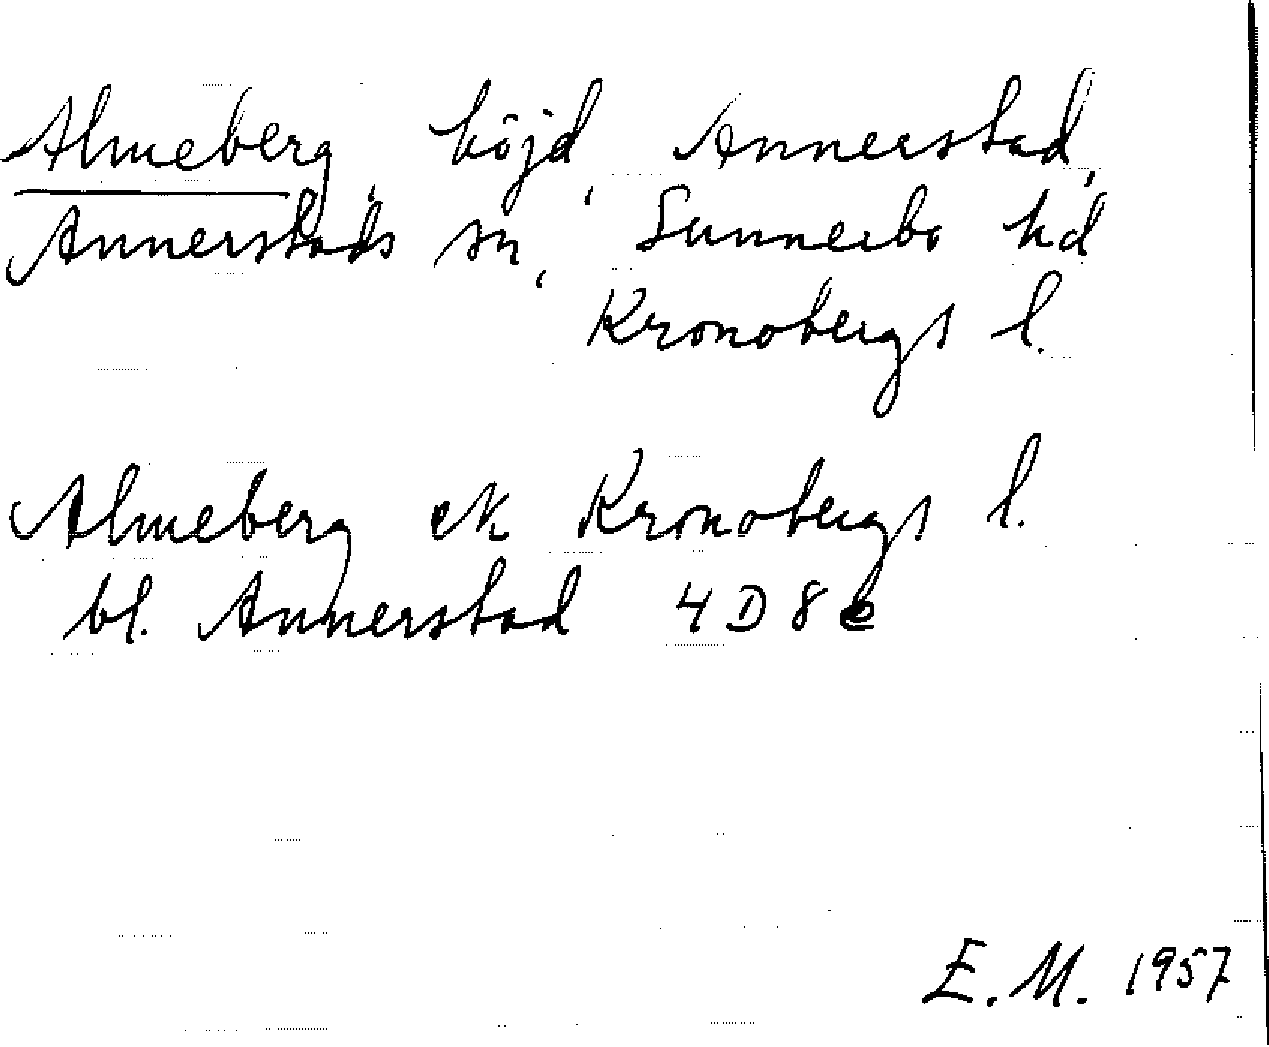 Almeberg, höjd, Annerstad,
Annerstads sn, Sunnerbo hd
Kronobergs l.
Almeberg ek Kronobergs l.
bl. Annerstad 4 D 8 e
E. M. 1957